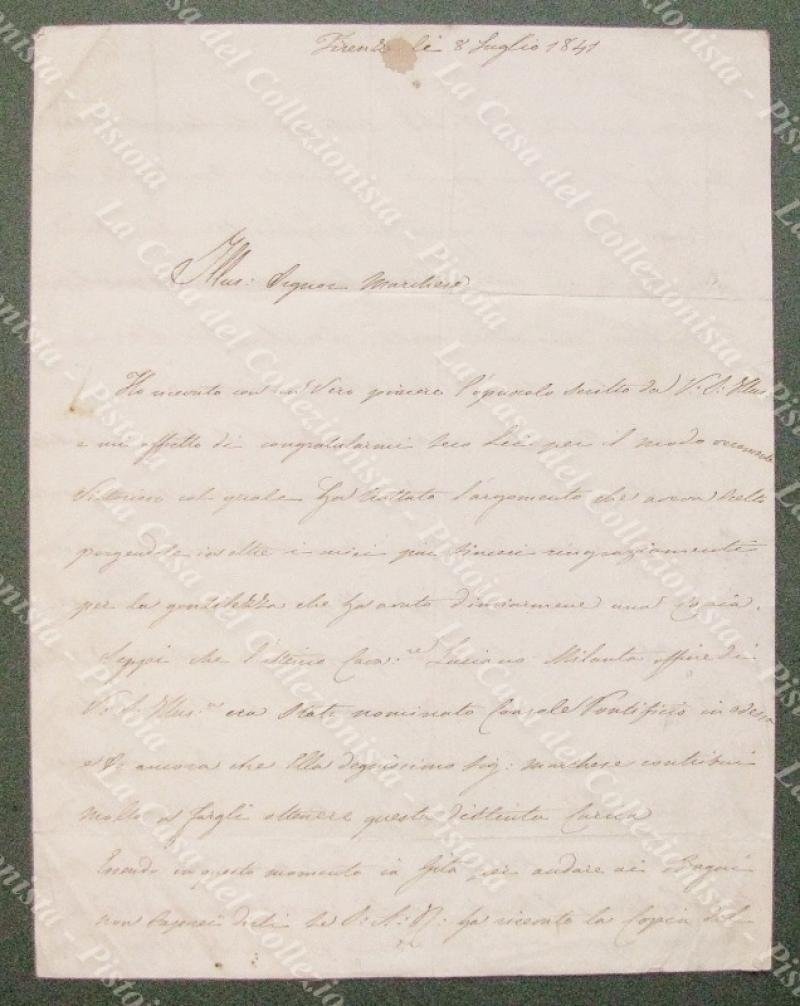 Firenze li 8 Luglio 1841
Illus: Signor Marchese
Ho ricevuto con un vero piacere l'opuscolo scritto da V: S: Illus:
e mi affretto di congratularmi seco Lei per il modo veramente
vittorioso col quale ha trattato l'argomento che aveva scelto
porgendole inoltre i miei più sinceri ringraziamenti
per la gentilezza che ha avuto d'inviarmene una Copia.
Seppi che l'ottimo Cav:re Luciano Milanta affine di
V: S: Illus:ma era stato nominato Console Pontificio in Odessa
e so ancora che Ella degnissimo Sig: Marchese contribuì
molto a fargli ottenere questa distinta Carica
Essendo in questo momento in gita per andare ai Bagni
non saprei dirli se V: S: Il: ha ricevuto la Copia del
La Casa del Collezionista - Pistoia